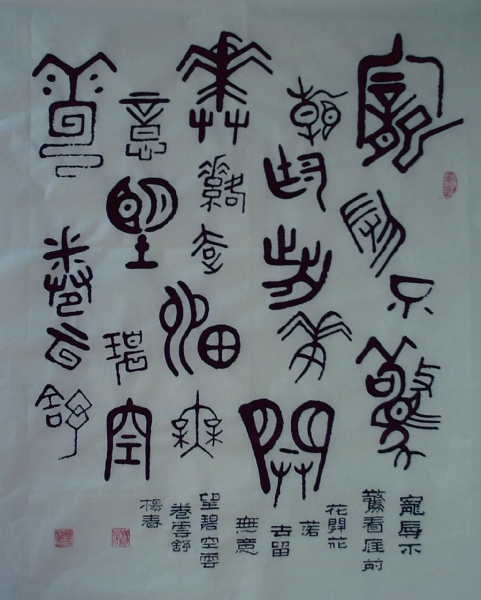 寵辱不驚
看庭前花開
花落去留無
意望碧空
雲卷雲舒
寵辱不
驚看庭前
花開花
落
去留
無意
望碧空雲
卷雲舒
楊春